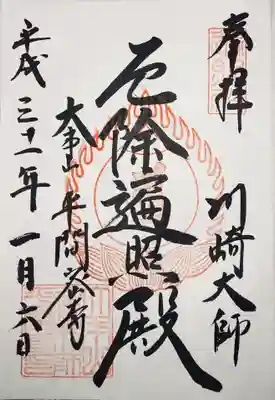 奉拝
川崎大師
厄除遍照殿
大本山平間寺
平成三十一年一月六日